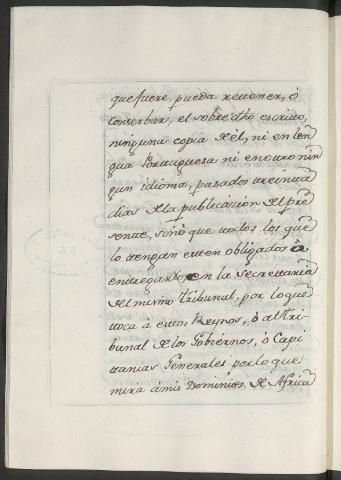 que fuere, pueda retener, ó
conserbar, el sobredho escrito,
ninguna copia del, ni en len
gua Portuguesa ni en otro nin
gun idioma, pasados treinta
dias de la publicacion del pre
sente, sinó que todos los que
lo tengan esten obligados á
entregarlos, en la Secrettaria
del mismo Tribunal, por lo que
ttoca á estos Reynos, ó al Tri
bunal de los Gobiérnos, ó Capi
ttanias Generales por lo que
mira á mis Dominios de Africa